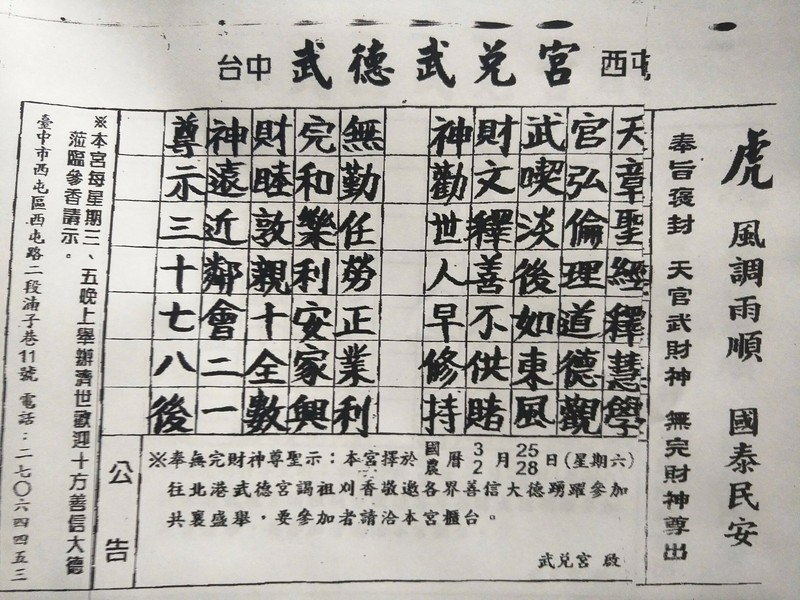 台中 武德武兌宮 西屯
虎 風調雨順 國泰民安
奉旨褒封 天官武財神 無完財神尊出
天章聖經釋慧學
官弘倫理道德觀
武喫淡後如東風
財文釋善不供賭
神勸世人早修持
無勤任勞正業利
完和樂利安家興
財睦敦親十全數
神遠近鄰會二一
尊示三十七八後
公告
※奉無完財神尊聖示：本宮擇於國曆3月25日(星期六)
農 2 28
往北港武德宮謁祖刈香敬邀各界善信大德踴躍參加
共襄盛舉，要參加者請洽本宮櫃台。
武兌宮 啟
※本宮每星期三、五晚上舉辦濟世歡迎十方善信大德
蒞臨參香請示。
臺中市西屯區西屯路二段湳子巷11號 電話：二七〇六四四五三